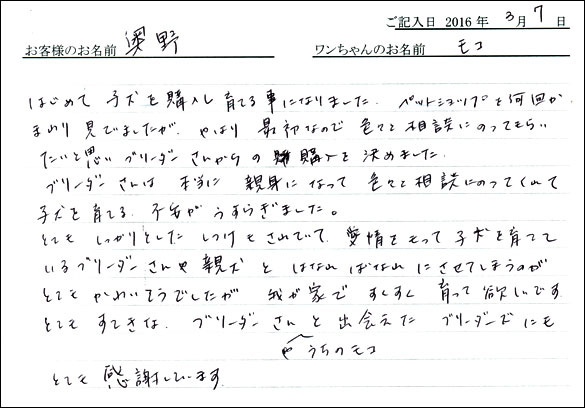 ご記入日 2016 年 3 月 7 日
お客様のお名前 奥野 ワンちゃんのお名前 モコ
はじめて 子犬を購入し育てる事になりました。ペットショップを何回か
まわり見てましたが、やはり 最初なので 色々と相談にのってもらい
たいと思い ブリーダーさんからの購入を決めました。
ブリーダーさんは 本当に 親身になって 色々と相談にのってくれて
子犬を育てる 不安が うすらぎました。
とても しっかりとした しつけも されていて、愛情をもって 子犬を育てて
いるブリーダーさんや親犬と はなればなれ にさせてしまうのが
とても かわいそうでしたが 我が家で すくすく 育って欲しいです
とても すてきな ブリーダーさんと出会えた ブリーダーズにも
や うちのモコ
とても 感謝しています